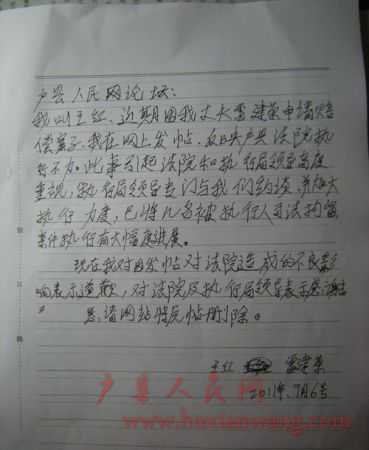 户县人民网论坛:
我叫王红、近期因我丈夫雷建荣申请赔
偿案子、我在网上发帖，反映户县法院执
行不力。此事引起法院和执行局领导高度
重视，执行局领导专门与我们约谈，并加大
执行力度，已将几名被执行人司法拘留
案件执行有大幅度进展。
现在我对因发帖对法院造成的不良影
响表示道歉，对法院及执行局领导表示感谢
请网站将反帖删除。
王红 雷建荣
2011年7月6号
户县人民网
www.huxianwang.com